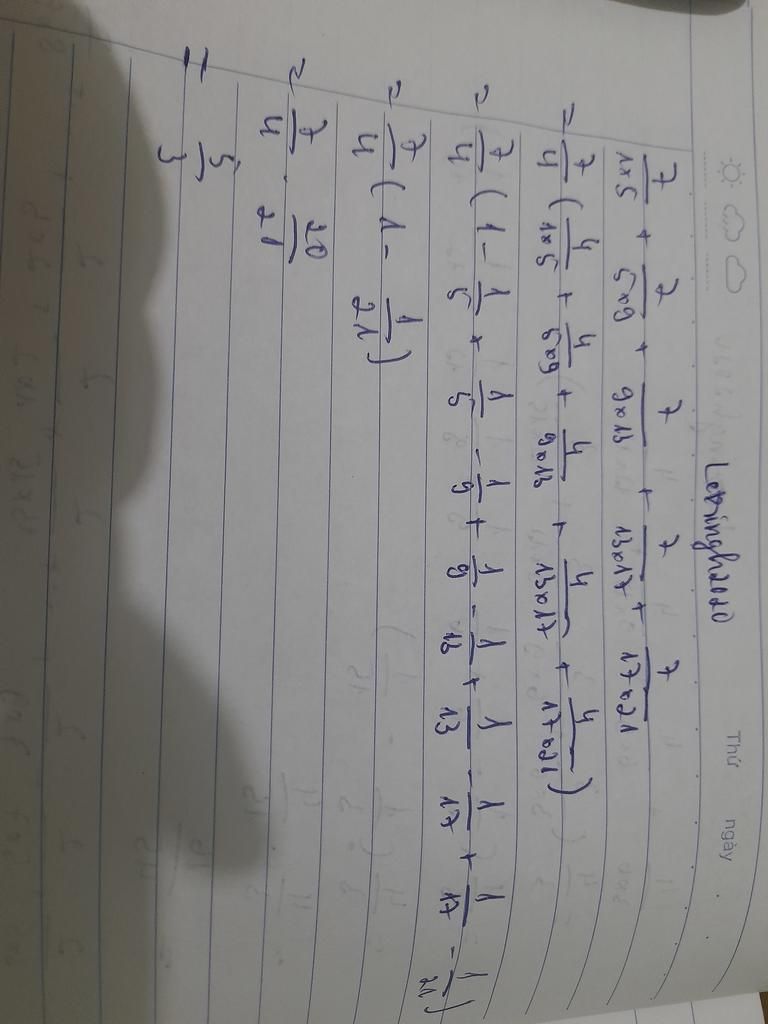 Thứ ngày
Lazinghzooo
7/1×5 + 7/5×9 + 7/9×13 + 7/13×17 + 7/17×21
= 7/4 ( 4/1×5 + 4/5×9 + 4/9×13 + 4/13×17 + 4/17×21 )
= 7/4 ( 1 - 1/5 + 1/5 - 1/9 + 1/9 - 1/13 + 1/13 - 1/17 + 1/17 - 1/21 )
= 7/4 ( 1 - 1/21 )
= 7/4 . 20/21
= 5/3